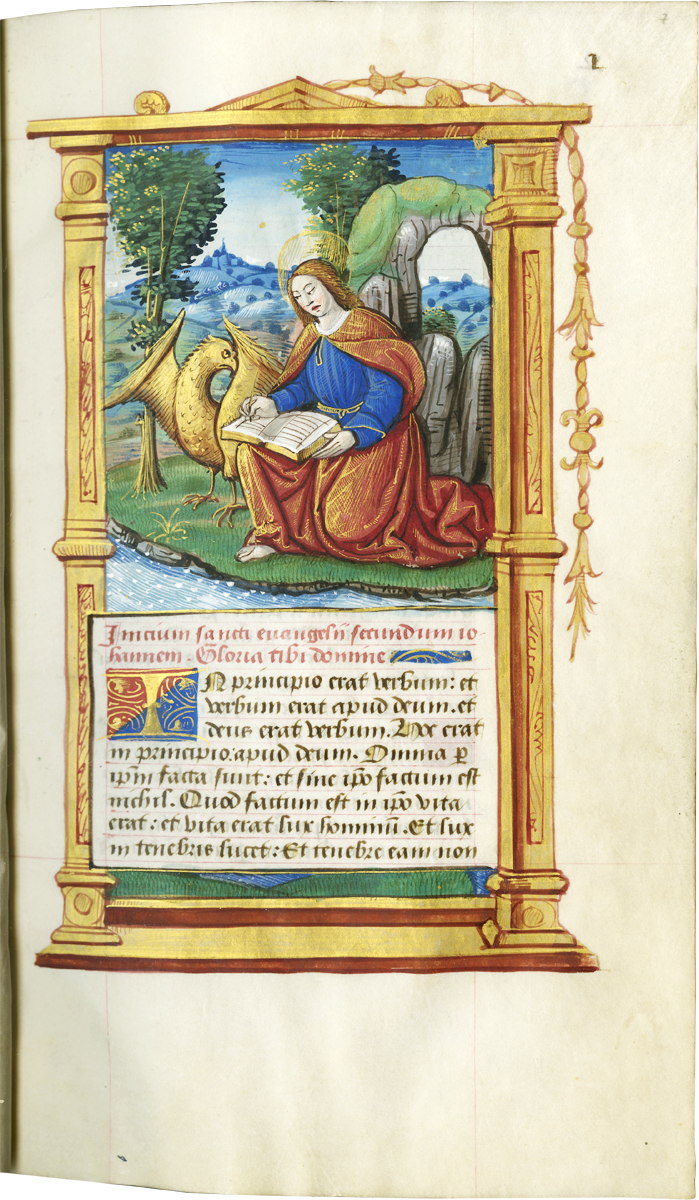 1
Inicium sancti euangelii secundum io-
hannem. Gloria tibi domine
IN principio erat verbum: et
verbum erat apud deum. et
deus erat verbum. Hoc erat
in principio apud deum. Omnia p̲
ip̅m facta sunt: et sine ip̅o factum est
nichil. Quod factum est in ip̅o vita
erat: et vita erat lux hominu̅. Et lux
in tenebris lucet: Et tenebre eam non